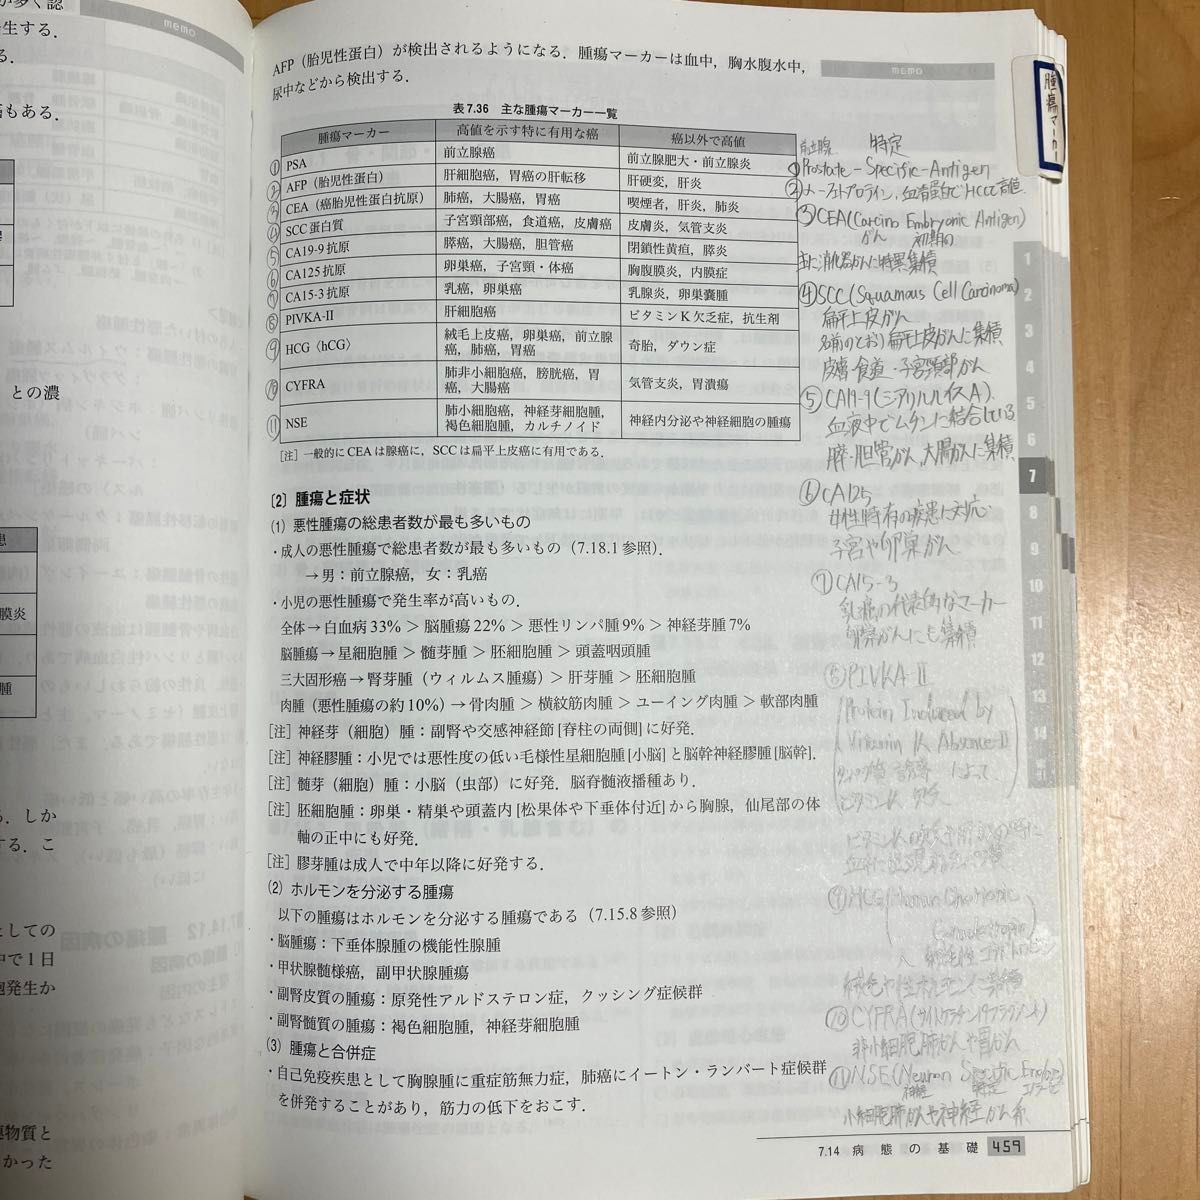 が多く認
生する.
る.
もある.
との濃
患
膜炎
腫
る. しか
する. こ
としての
中で1日
胞発生か
原物質と
かった
memo
AFP（胎児性蛋白）が検出されるようになる. 腫瘍マーカーは血中，胸水腹水中，
尿中などから検出する.
memo
腫瘍マーカー
表7.36　主な腫瘍マーカー一覧
腫瘍マーカー　高値を示す特に有用な癌　癌以外で高値
① PSA　前立腺癌　前立腺肥大・前立腺炎
② AFP（胎児性蛋白）　肝細胞癌，胃癌の肝転移　肝硬変，肝炎
③ CEA（癌胎児性蛋白抗原）　肺癌，大腸癌，胃癌　喫煙者，肝炎，肺炎
④ SCC蛋白質　子宮頸部癌，食道癌，皮膚癌　皮膚炎，気管支炎
⑤ CA19-9抗原　膵癌，大腸癌，胆管癌　閉鎖性黄疸，膵炎
⑥ CA125抗原　卵巣癌，子宮頸・体癌　胸腹膜炎，内膜症
⑦ CA15-3抗原　乳癌，卵巣癌　乳腺炎，卵巣嚢腫
⑧ PIVKA-II　肝細胞癌　ビタミンK欠乏症，抗生剤
⑨ HCG〈hCG〉　絨毛上皮癌，卵巣癌，前立腺癌，肺癌，胃癌　奇胎，ダウン症
⑩ CYFRA　肺非小細胞癌，膀胱癌，胃癌，大腸癌　気管支炎，胃潰瘍
⑪ NSE　肺小細胞癌，神経芽細胞腫，褐色細胞腫，カルチノイド　神経内分泌や神経細胞の腫瘍
［注］一般的にCEAは腺癌に，SCCは扁平上皮癌に有用である.
〔2〕腫瘍と症状
(1) 悪性腫瘍の総患者数が最も多いもの
・成人の悪性腫瘍で総患者数が最も多いもの（7.18.1参照）.
→男：前立腺癌，女：乳癌
・小児の悪性腫瘍で発生率が高いもの.
全体→白血病33% ＞ 脳腫瘍22% ＞ 悪性リンパ腫9% ＞ 神経芽腫7%
脳腫瘍→星細胞腫 ＞ 髄芽腫 ＞ 胚細胞腫 ＞ 頭蓋咽頭腫
三大固形癌→腎芽腫（ウィルムス腫瘍）＞ 肝芽腫 ＞ 胚細胞腫
肉腫（悪性腫瘍の約10%）→骨肉腫 ＞ 横紋筋肉腫 ＞ ユーイング肉腫 ＞ 軟部肉腫
［注］神経芽（細胞）腫：副腎や交感神経節[脊柱の両側]に好発.
［注］神経膠腫：小児では悪性度の低い毛様性星細胞腫[小脳]と脳幹神経膠腫[脳幹].
［注］髄芽（細胞）腫：小脳（虫部）に好発. 脳脊髄液播種あり.
［注］胚細胞腫：卵巣・精巣や頭蓋内[松果体や下垂体付近]から胸腺，仙尾部の体
軸の正中にも好発.
［注］膠芽腫は成人で中年以降に好発する.
(2) ホルモンを分泌する腫瘍
以下の腫瘍はホルモンを分泌する腫瘍である（7.15.8参照）
・脳腫瘍：下垂体腺腫の機能性腺腫
・甲状腺髄様癌，副甲状腺腫瘍
・副腎皮質の腫瘍：原発性アルドステロン症，クッシング症候群
・副腎髄質の腫瘍：褐色細胞腫，神経芽細胞腫
(3) 腫瘍と合併症
・自己免疫疾患として胸腺腫に重症筋無力症，肺癌にイートン・ランバート症候群
を併発することがあり，筋力の低下をおこす.
前立腺　特定
① Prostate-Specific-Antigen
② フェトプロテイン，血清蛋白でHCC高値
③ CEA (Carcino Embryonic Antigen)
がん　初期の
主に消化器がんに集積
④ SCC (Squamous Cell Carcinoma)
扁平上皮がん
名前のとおり扁平上皮がんに集積
皮膚・食道・子宮頸部がん
⑤ CA19-9(シアリルルイスA)
血液中でムチンに結合している
膵・胆管がん，大腸がんに集積
⑥ CA125
女性特有の疾患に対応.
子宮や卵巣がん
⑦ CA15-3
乳癌の代表的なマーカー
卵巣がんにも集積
⑧ PIVKA II
Protein Induced by
Vitamin K Absence II
タンパク質 誘導 によって
ビタミンK 欠乏
⑨ HCG (Human Chorionic
Gonadotropin)
⑩ CYFRA(サイトケラチン19フラグメント)
非小細胞肺がんや胃がん
⑪ NSE (Neuron Specific Enolase)
神経　特定　エノラーゼ
小細胞肺がんや神経がん系
1
2
3
4
5
6
7
8
9
10
11
12
13
14
7.14　病態の基礎　459